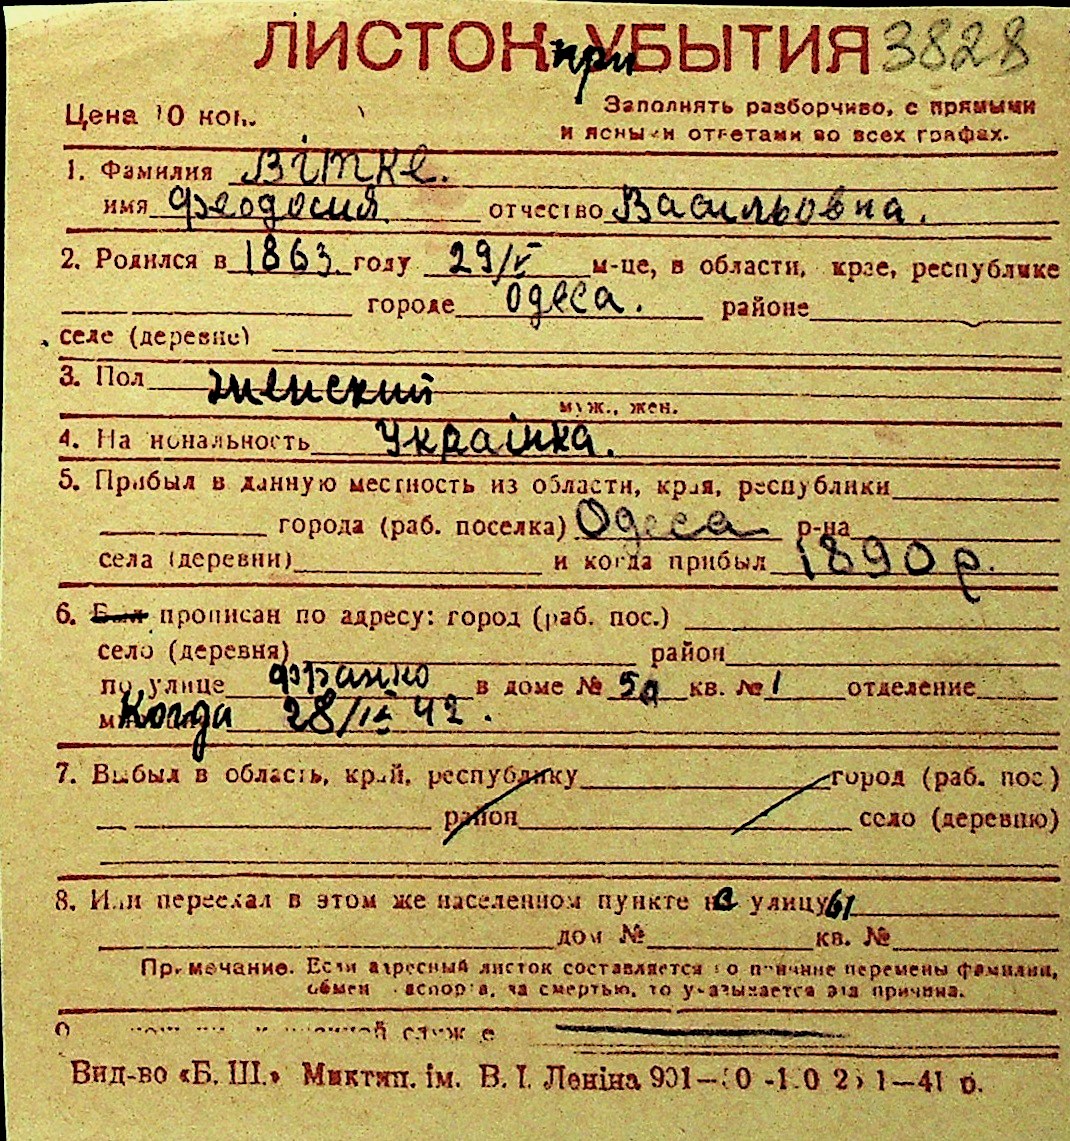 ЛИСТОК при УБЫТИЯ 3828
Цена 10 коп.
Заполнять разборчиво, с прямыми
и ясными ответами во всех графах.
1. Фамилия Вітке.
имя Феодосия отчество Васильовна.
2. Родился в 1863 году 29/V м-це, в области, крае, республике
городе Одеса. районе
селе (деревне)
3. Пол женский
муж., жен.
4. Национальность Українка.
5. Прибыл в данную местность из области, края, республики
города (раб. поселка) Одеса р-на
села (деревни) и когда прибыл 1890 р.
6. Был прописан по адресу: город (раб. пос.)
село (деревня) район
по улице Франко в доме № 5а кв. № 1 отделение
Когда 28/IV 42.
7. Выбыл в область, край, республику город (раб. пос.)
район село (деревню)
8. Или переехал в этом же населенном пункте на улицу 61
дом № кв. №
Примечание. Если адресный листок составляется по причине перемены фамилии,
обмен паспорта, за смертью, то указывается эта причина.
службе
Вид-во «Б. Ш.» Миктип. ім. В. І. Леніна 901— 1—41 р.